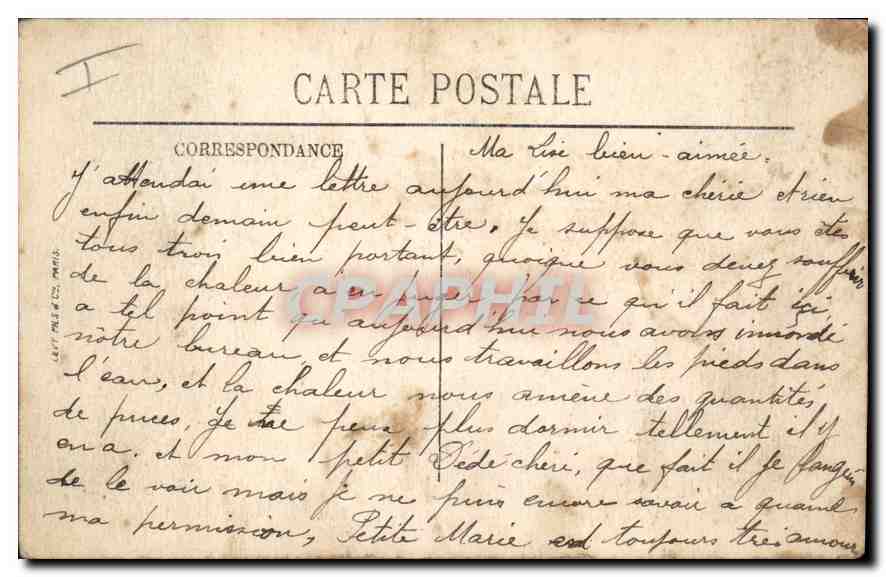 I
CARTE POSTALE
CORRESPONDANCE
Ma Lise bien-aimée.
J'attendai une lettre aujourd'hui ma chérie et rien
enfin demain peut-être. Je suppose que vous êtes
tous trois bien portant, quoique vous devez souffrir
de la chaleur a en juger par ce qu'il fait ici
a tel point qu'aujourd'hui nous avons innondé
nôtre bureau, et nous travaillons les pieds dans
l'eau, et la chaleur nous amène des quantités
de puces, Je ne peux plus dormir tellement il y
en a. et mon petit Dédé chéri, que fait il Je languis
de le voir mais je ne puis encore savoir a quand
ma permission, Petite Marie est toujours très amour
LEVY FILS & Cie, PARIS.
CPAPHIL